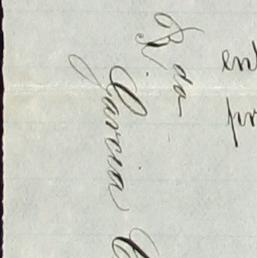 R da
Garcia
en
pr